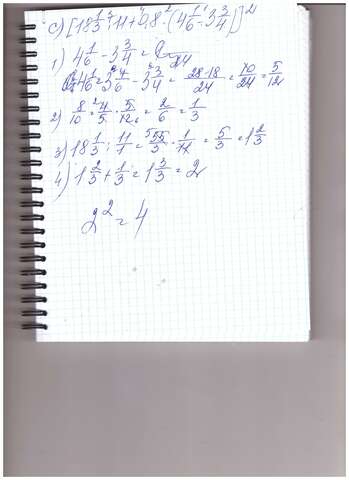 c) [18 1/3 : 11 + 0,8 · (4 1/6 - 3 3/4)]²
1) 4 1/6 - 3 3/4 =
4 1/6 - 3 3/4 = = 10/24 = 5/12
2) 8/10 = 4/5 · 5/12 = 2/6 = 1/3
3) 18 1/3 : 11/1 = 55/3 · 1/11 = 5/3 = 1 2/3
4) 1 2/3 + 1/3 = 1 3/3 = 2
2² = 4